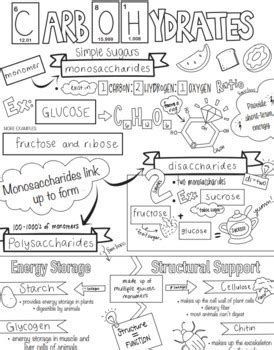 CARBOHYDRATES
6 8 1
12.01 15.999 1.008
Simple Sugars
monomer
monosaccharides
exist in 1 CARBON: 2 HYDROGEN: 1 OXYGEN Ratio
Ex:
GLUCOSE
C₆H₁₂O₆
forms a ring
Provide short-term energy
MORE EXAMPLES
fructose and ribose
disaccharides
Monosaccharides link up to form
2
two monosaccharides
di = two
Ex: sucrose
table sugar
fructose
glucose
100-1000's of monomers
Polysaccharides
functions
Energy Storage
Structural Support
Starch
provides energy storage in plants
digestible by animals
made up of multiple glucose monomers
Cellulose
makes up the cell wall of plant cells
dietary fiber
most animals can't digest
Glycogen
energy storage in muscle and
liver cells of animals
Structure = FUNCTION
Chitin
makes up the exoskeleton